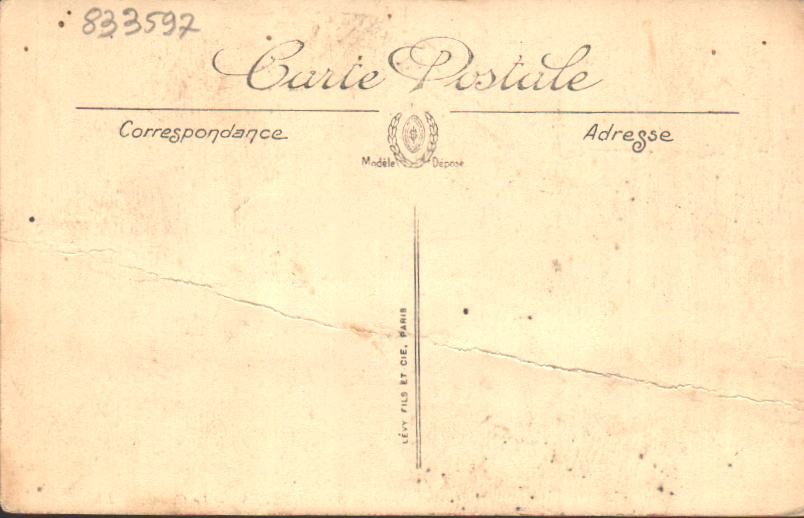 833597
Carte Postale
Correspondance
Adresse
Modèle Déposé
LÉVY FILS ET CIE, PARIS